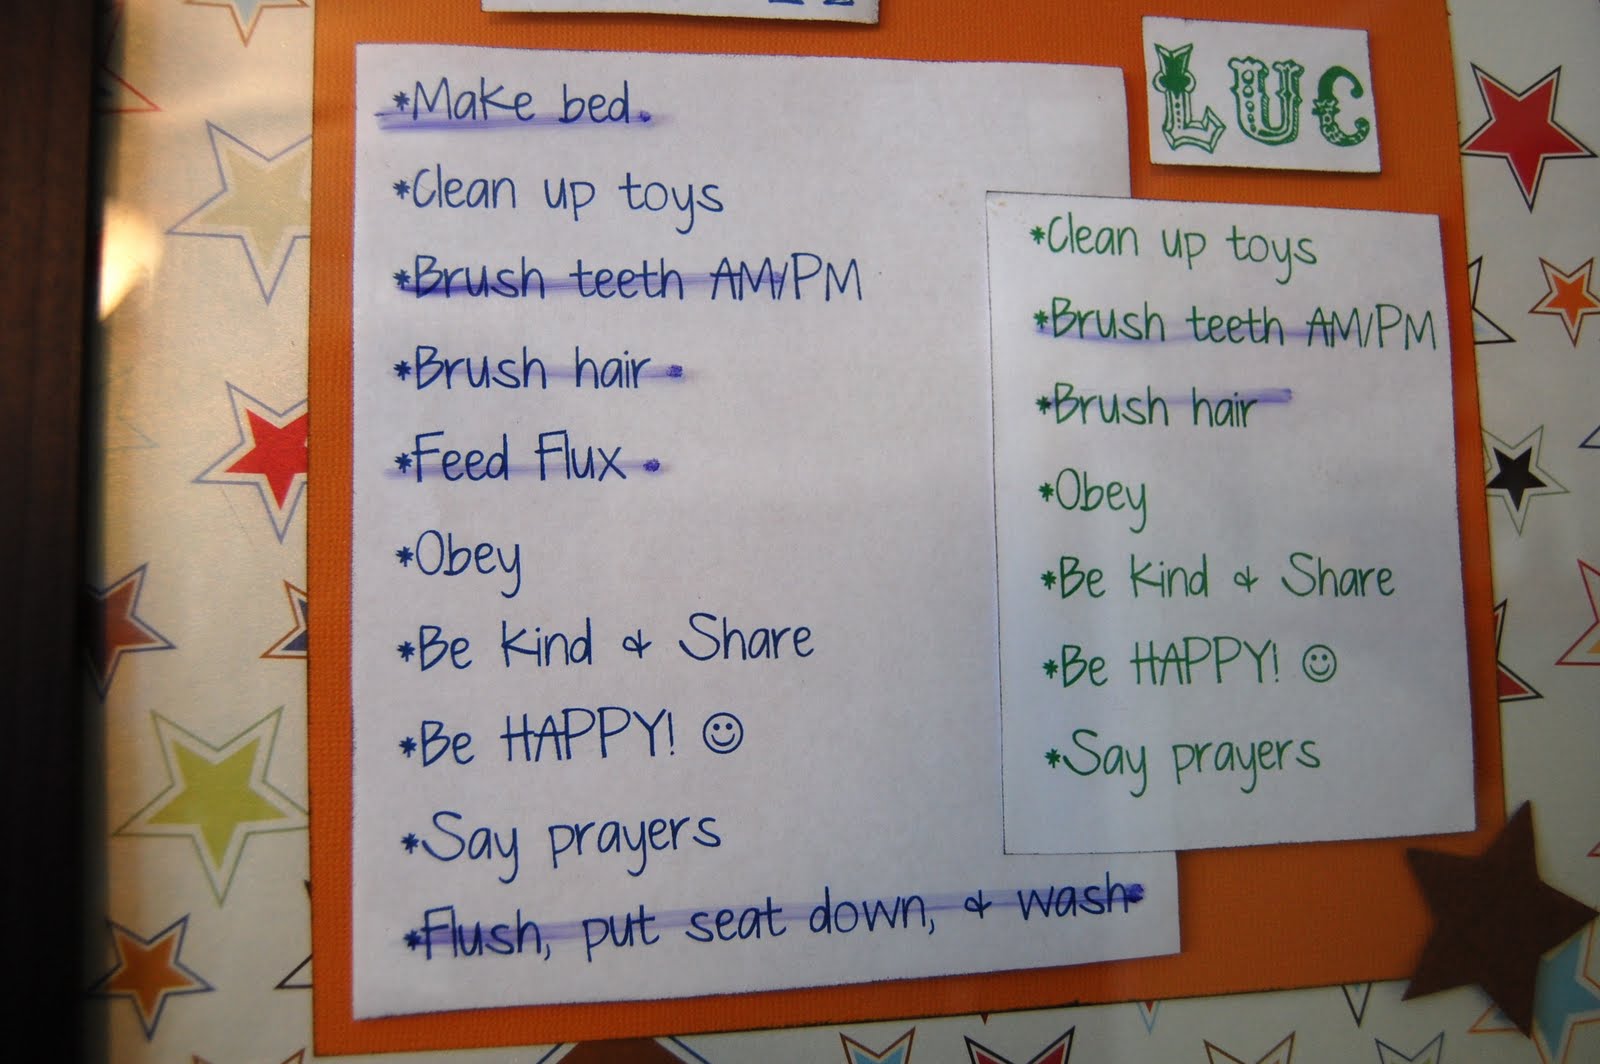 *Make bed.
*Clean up toys
*Brush teeth AM/PM
*Brush hair
*Feed Flux
*Obey
*Be kind & Share
*Be HAPPY! ☺
*Say prayers
*Flush, put seat down, & wash
LUC
*Clean up toys
*Brush teeth AM/PM
*Brush hair
*Obey
*Be kind & Share
*Be HAPPY! ☺
*Say prayers